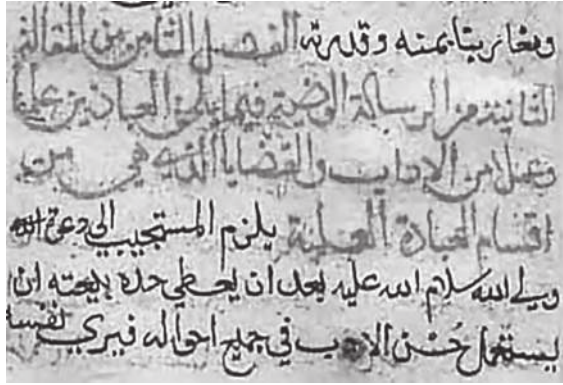 ومغاربتا بمنه وقدرته الفصل الثامن من المقالة
الثانية من الرسالة الوضية فيما يلحق العبادتين علما
وعملا من الاداب والقضايا الذي هي من
اقسام العبادة العملية يلزم المستجيب الى دعوة الله
ولي الله سلام الله عليه بعد ان يعطي حده بيعته ان
يستعمل حُسن الادب في جميع احواله فيري نفسه